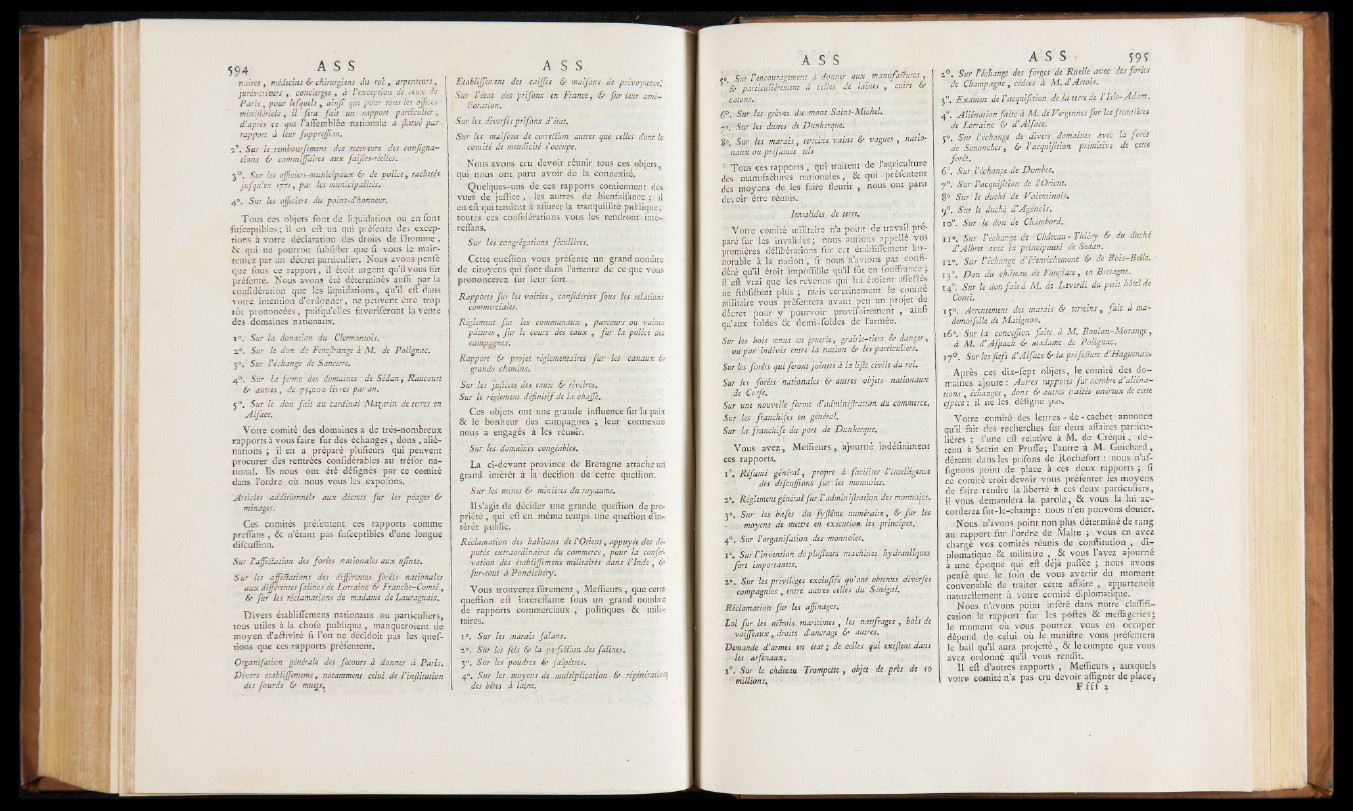 594 A S S
naires, médecins & chirurgiens du roi, arpenteurs,
jurés-crieurs, concierges, à l'exception de ceux de
Paris, pour lesquels, ainsi que pour tous les offices
ministériels, il sera fait un rapport particulier,
d'après ce que l'assemblée nationale a statué par
rapport à leur suppression.
2°. Sur le remboursement des receveurs des consigna-
tions & commissaires aux saisies-réelles.
3°. Sur les officiers-municipaux & de police, rachetés
jusqu'en 1771, par les municipalités.
4°. Sur les officiers du point-d'honneur.
Tous ces objets sont de liquidation ou en sont
susceptibles; il en est un qui présente des excep-
tions à votre déclaration des droits de l'homme,
& qui ne pourtroit subsister que si vous le main-
teniez par un décret particulier. Nous avons pensé
que sous ce rapport, il étoit urgent qu'il vous fût
présenté. Nous avons été déterminés aussi par la
considération que les liquidations, qu'il est dans
votre intention d'ordonner, ne peuvent être trop
tôt prononcées, puisqu'elles favoriseront la vente
des domaines nationaux.
1°. Sur la donation du Clermontois.
2°. Sur le don de Fenestrange à M. de Polignac.
3°. Sur l'échange de Sancerre.
4°. Sur la ferme des domaines de Sédan, Raucourt
& autres, de 75,000 livres par an.
5°. Sur le don fait au cardinal Mazarin de terres en
Alsace.
Votre comité des domaines a de très-nombreux
rapports à vous faire sur des échanges, dons, alié-
nations; il en a préparé plusieurs qui peuvent
procurer des rentrées considérables au trésor na-
tional. Ils nous ont été désignés par ce comité
dans l'ordre où nous vous les exposons.
Articles additionnels aux décrets sur les péages &
minages.
Ces comités présentent ces rapports comme
pressans, & n'étant pas susceptibles d'une longue
discussion.
Sur l'affectation des forêts nationales aux usines.
Sur les affectations des différentes forêts nationales
aux différentes salines de Lorraine & Franche-Comté,
& sur les réclamations de madame de Lauraguais.
Divers établissemens nationaux ou particuliers,
tous utiles à la chose publique, manqueroient de
moyen d'activité si l'on ne décidoit pas les ques-
tions que ces rapports présentent.
Organisation générale des secours à donner à Paris.
Divers établissemens, notamment celui de l'institution
des sourds & muets.
A S S
Etablissement des caisses & maisons de prévoyance.
Sur l'état des prisons en France, & sur leur amé-
lioration.
Sur les diverses prisons d'état.
Sur les maisons de correction autres que celles dont le
comité de mendicité s'occupe.
Nous avons cru devoir réunir tous ces objets,
qui nous ont paru avoir de la connexité.
Quelques-uns de ces rapports contiennent des
vues de justice, les autres de bienfaisance; il
en est qui tendent à assurer la tranquillité publique;
toutes ces considérations vous les rendront inté-
ressans.
Sur les congrégations séculières.
Cette question vous présente un grand nombre
de citoyens qui sont dans l'attente de ce que vous
prononcerez sur leur sort.
Rapports sur les voiries, considérées sous les relations
commerciales.
Réglement sur les communaux, parcours ou vaines
pâtures, sur le cours des eaux, sur la police des
campagnes.
Rapport & projet réglementaires sur les canaux &
grands chemins.
Sur les justices des eaux & rivières.
Sur le réglement définitif de la chasse.
Ces objets ont une grande influence sur la paix
& le bonheur des campagnes; leur connexité
nous a engagés à les réunir.
Sur les domaines congéables.
La ci-devant province de Bretagne attache un
grand intérêt à la décision de cette question.
Sur les mines & minières du royaume.
Il s'agit de décider une grande question de pro-
priété, qui est en même temps une question d'in-
térêt public.
Réclamation des habitans de l'Orient, appuyée des dé-
putés extraordinaires du commerce, pour la conser-
vation des établissemens militaires dans l'Inde, &
sur-tout à Pondichéry.
Vous trouverez sûrement, Messieurs, que cette
question est intéressante sous un grand nombre
de rapports commerciaux, politiques & mili-
taires.
1°. Sur les marais salans.
2°. Sur les sels & la perfection des salines.
3°. Sur les poudres & salpêtres.
4°. Sur les moyens de multiplication & régénération
des bêtes à laine.
A S S
5°. Sur l'encouragement à donner aux manufactures,
& particulièrement à celles de laines, cuirs &
cotons.
6°. Sur les grèves du mont Saint-Michel.
7°. Sur les dunes de Dunkerque.
8°. Sur les marais, terreins vains & vagues, natio-
naux ou présumés tels.
Tous ces rapports, qui traitent de l'agriculture
des manufactures nationales, & qui présentent
des moyens de les faire fleurir, nous ont paru
devoir être réunis.
Invalides de terre.
Votre comité militaire n'a point de travail pré-
paré sur les invalides; nous aurions appellé vos
premières délibérations sur cet établissement ho-
norable à la nation, si nous n'avions pas consi-
déré qu'il étoit impossible qu'il fût en souffrance;
il est vrai que les revenus qui lui étoient affectés
ne subsistent plus; mais certainement le comité
militaire vous présentera avant peu un projet de
décret pour y pourvoir provisoirement, ainsi
qu'aux soldes & demi-soldes de l'armée.
Sur les bois tenus en gruerie, grairie-tiers & danger,
ou par indivis entre la nation & les particuliers.
Sur les forêts qui seront jointes à la liste civile du roi.
Sur les forêts nationales & autres objets nationaux
de Corse.
Sur une nouvelle forme d'administration du commerce.
Sur les franchises en général.
Sur la franchise du port de Dunkerque.
Vous avez, Messieurs, ajourné indéfiniment
ces rapports.
1°. Résumé général, propre à faciliter l'intelligence
des discussions sur les monnoies.
2°. Réglement général sur l'administration des monnoies.
3°. Sur les bases du système numéraire, & sur les
moyens de mettre en exécution les principes.
4°. Sur l'organisation des monnoies.
1°. Sur l'invention de plusieurs machines hydrauliques
fort importantes.
2°. Sur les privilèges exclusifs qu'ont obtenus diverses
compagnies, entre autres celles du Sénégal.
Réclamation sur les affinages.
Loi sur les octrois maritimes, les naufrages, bois de
vaisseaux, droits d'ancrage & autres.
Demande d'armes en état; de celles qui existent dans
les arsenaux.
1°. Sur le château Trompette, objet de près de 10
millions.
A S S 595
2°. Sur l'échange des forges de Ruelle avec des forêts
de Champagne, cédées à M. d'Artois.
3°. Examen de l'acquisition de la terre de l'Isle-Adam.
4°. Aliénation faite à M. de Vergennes sur les frontières
de Lorraine & d'Alsace.
5°. Sur l'échange de divers domaines avec la forêt
de Senoncher, & l'acquisition primitive de cette
forêt.
6°. Sur l'échange de Dombes.
7°. Sur l'acquisition de l'Orient.
8° Sur le duché de Valentinois.
9°. Sur le duché d'Agénois.
10°. Sur le don de Chambord.
11°. Sur l'échange de Château-Thiéry & du duché
d'Albret avec la principauté de Sédan.
12°. Sur l'échange d'Henrichemont & de Bois-Belle.
13°. Don du château de Fougères, en Bretagne.
14°. Sur le don fait à M. de Laverdi du petit hôtel de
Conti.
15°. Arrentement des marais & terreins, fait à ma-
demoiselle de Matignon.
16°. Sur la concession faite à M. Bonlon-Morange,
à M. d'Aspach & madame de Polignac.
17°. Sur les fiefs d'Alsace & la préfecture d'Haguenau.
Après ces dix-sept objets, le comité des do-
maines ajoute: Autres rapports sur nombre d'aliéna-
tions, échanges, dons & autres traités onéreux de cette
espèce: il ne les désigne pas.
Votre comité des lettres-de-cachet annonce
qu'il fait des recherches sur deux affaires particu-
lières: l'une est relative à M. de Créqui, dé-
tenu à Stetin en Prusse; l'autre à M. Guichard,
détenu dans les prisons de Rochefort: nous n'as-
signons point de place à ces deux rapports; si
ce comité croit devoir vous présenter les moyens
de faire rendre la liberté à ces deux particuliers,
il vous demandera la parole, & vous la lui ac-
corderez sur-le-champ: nous n'en pouvons douter.
Nous n'avons point non plus déterminé de rang
au rapport sur l'ordre de Malte; vous en avez
chargé vos comités réunis de constitution, di-
plomatique & militaire, & vous l'avez ajourné
à une époque qui est déjà passée; nous avons
pensé que le soin de vous avertir du moment
convenable de traiter cette affaire, appartenoit
naturellement à votre comité diplomatique.
Nous n'avons point inséré dans notre classifi-
cation le rapport sur les postes & messageries;
le moment où vous pourrez vous en occuper
dépend de celui où le ministre vous présentera
le bail qu'il aura projetté, & le compte que vous
avez ordonné qu'il vous rendît.
Il est d'autres rapports, Messieurs, auxquels
votre comité n'a pas cru devoir assigner de place,
F fff 2